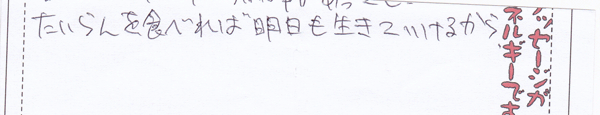 たいらんを食べれば明日も生きていけるから
ッセージが
ネルギーです